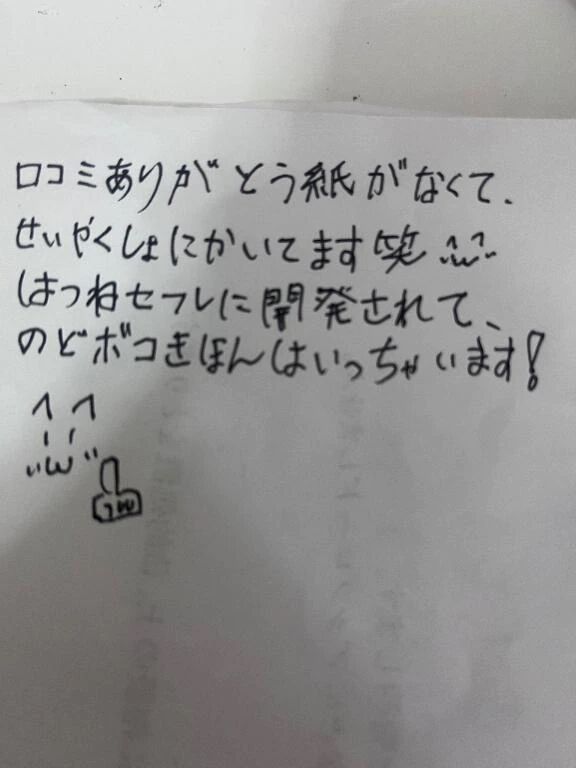 口コミありがとう紙がなくて、
せいやくしょにかいてます笑
はつねセフレに開発されて、
のどボコきほんはいっちゃいます!